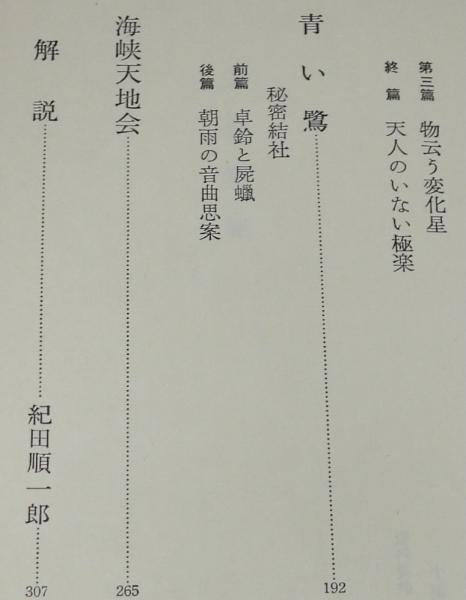 第三篇 物云う変化星
終篇 天人のいない極楽
青い鷺……192
秘密結社
前篇 卓鈴と屍蠟
後篇 朝雨の音曲思案
海峡天地会……265
解説……紀田順一郎……307